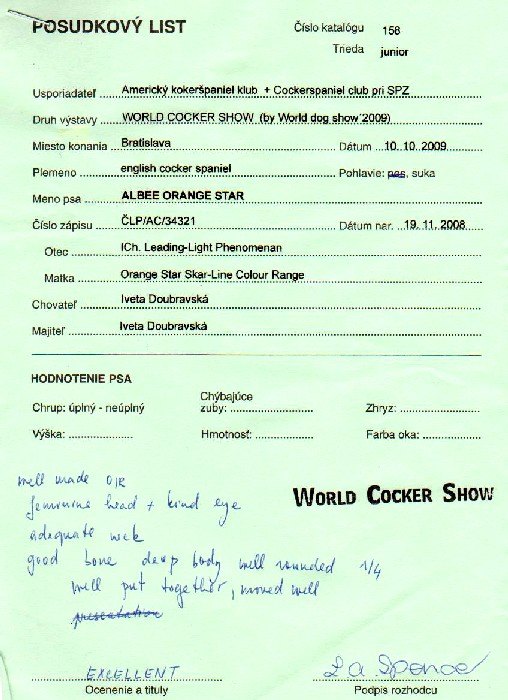 POSUDKOVÝ LIST
Číslo katalógu 158
Trieda junior
Usporiadateľ Americký kokeršpaniel klub + Cockerspaniel club pri SPZ
Druh výstavy WORLD COCKER SHOW (by World dog show´2009)
Miesto konania Bratislava Dátum 10. 10. 2009
Plemeno english cocker spaniel Pohlavie: pes, suka
Meno psa ALBEE ORANGE STAR
Číslo zápisu ČLP/AC/34321 Dátum nar. 19. 11. 2008
Otec ICh. Leading-Light Phenomenan
Matka Orange Star Skar-Line Colour Range
Chovateľ Iveta Doubravská
Majiteľ Iveta Doubravská
HODNOTENIE PSA
Chrup: úplný - neúplný Chýbajúce zuby: Zhryz:
Výška: Hmotnosť: Farba oka:
WORLD COCKER SHOW
well made O/R
feminine head + kind eye
adequate neck
good bone deep body well rounded 1/4
well put together, moved well
presentation
EXCELLENT L A Spence
Ocenenie a tituly Podpis rozhodcu